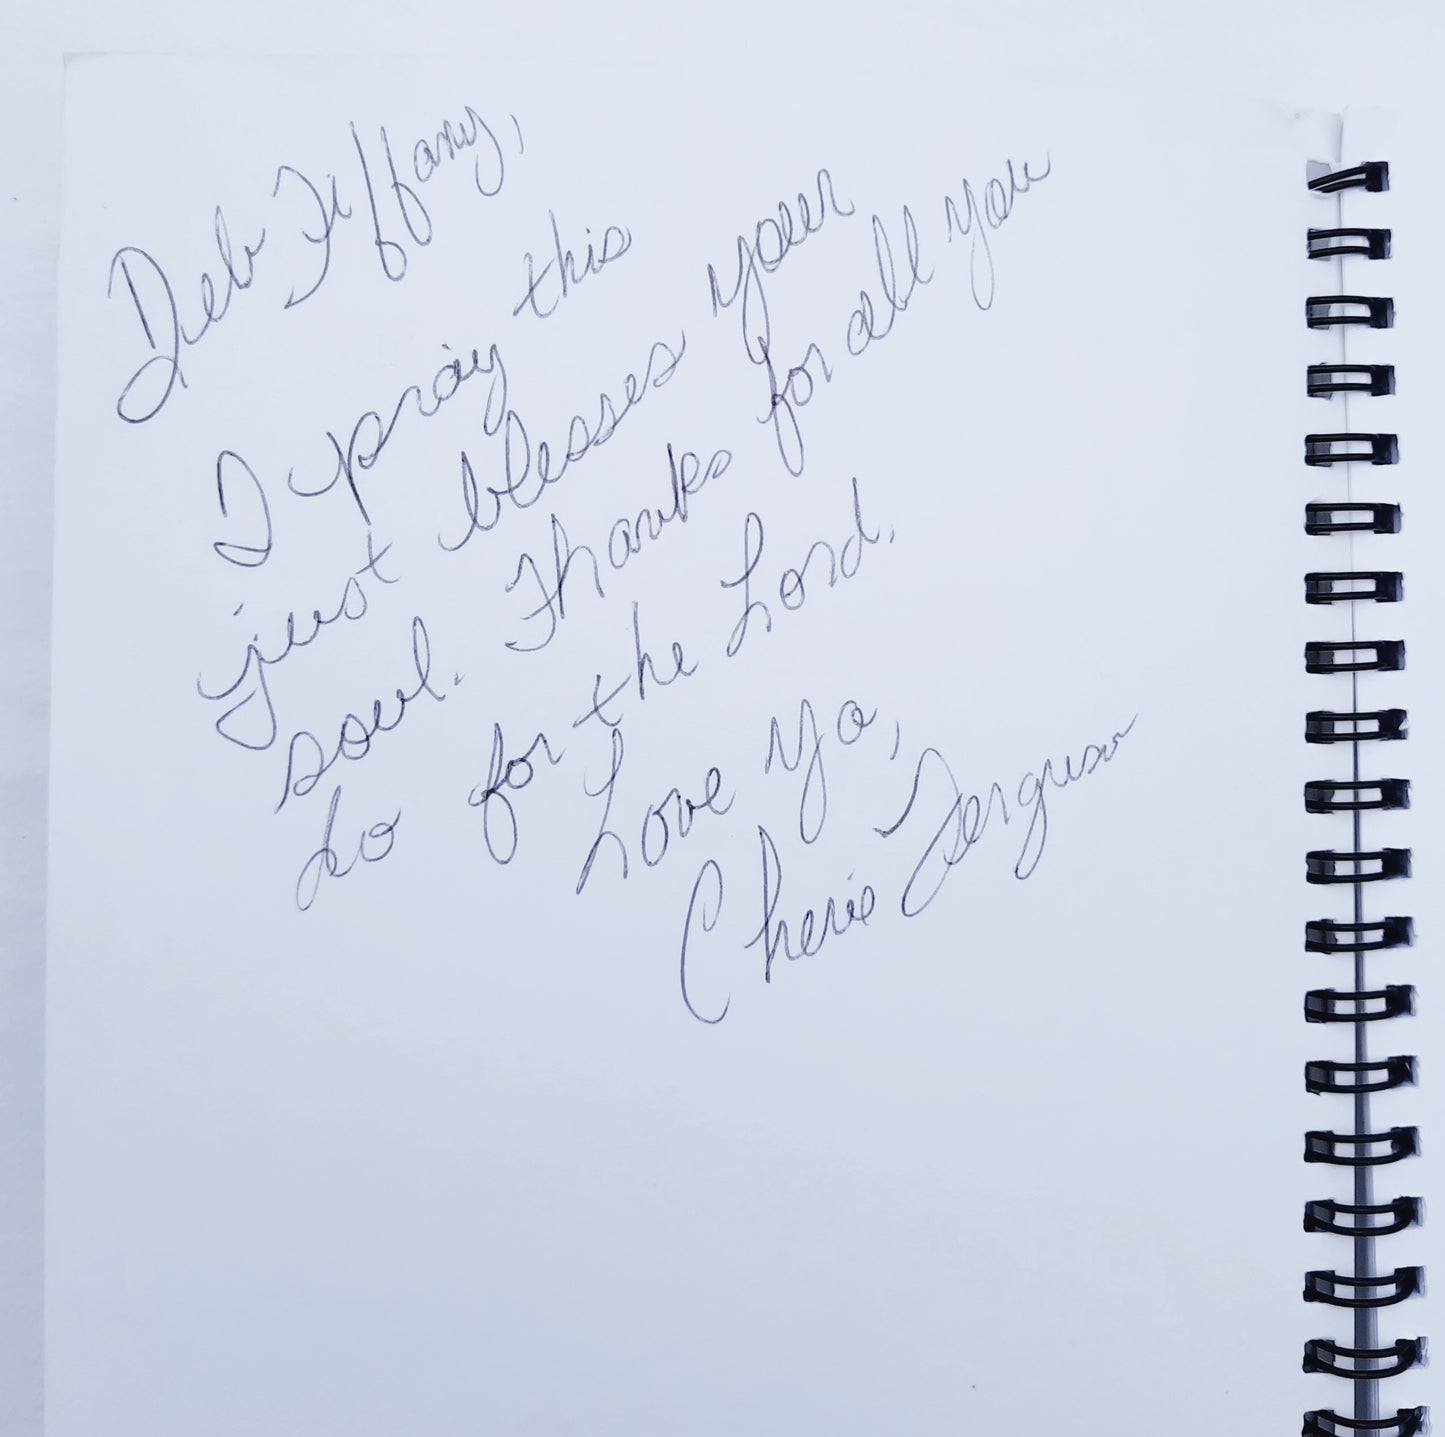 Deb Tiffany,
I pray this
just blesses your
soul. Thanks for all you
do for the Lord.
Love Ya,
Cherie Ferguson